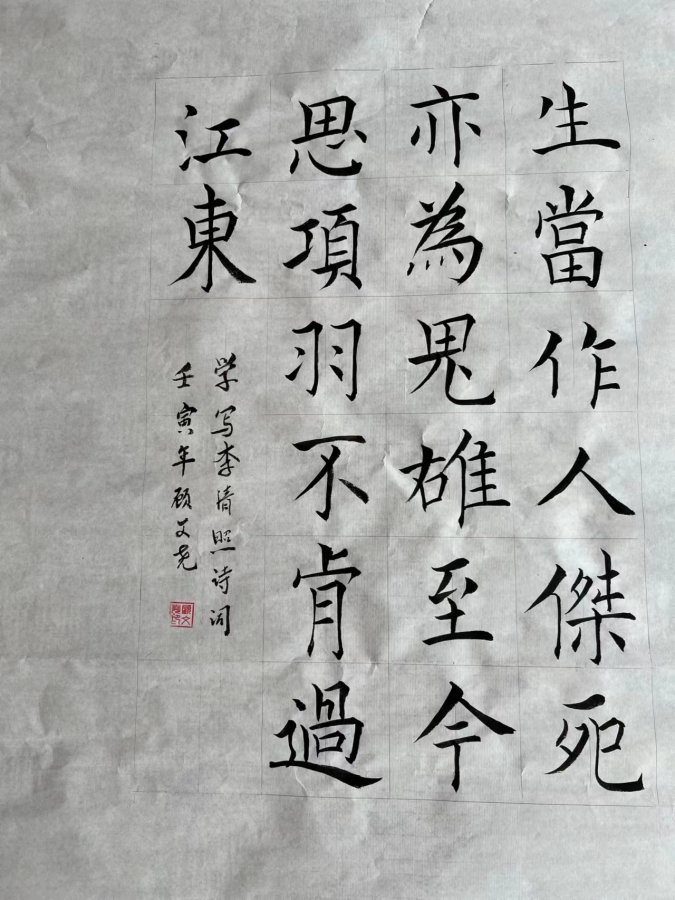 生當作人傑死
亦為鬼雄至今
思項羽不肯過
江東
学写李清照诗词
壬寅年顾文尧